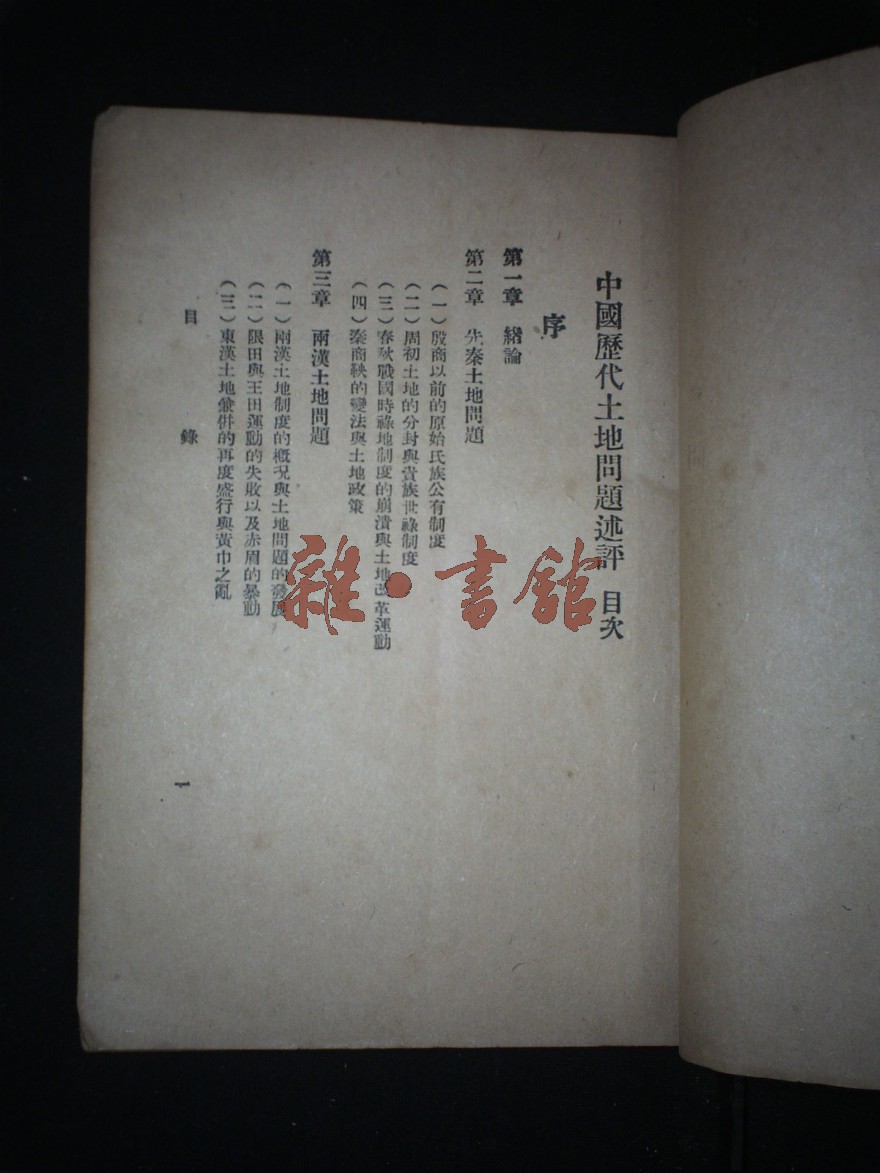 中國歷代土地問題述評 目次
序
第一章 緒論
第二章 先秦土地問題
(一)殷商以前的原始氏族公有制度
(二)周初土地的分封與貴族世祿制度
(三)春秋戰國時祿地制度的崩潰與土地改革運動
(四)秦商鞅的變法與土地政策
第三章 兩漢土地問題
(一)兩漢土地制度的概況與土地問題的發展
(二)限田與王田運動的失敗以及赤眉的暴動
(三)東漢土地兼併的再度盛行與黃巾之亂
目錄
一
雜·書館